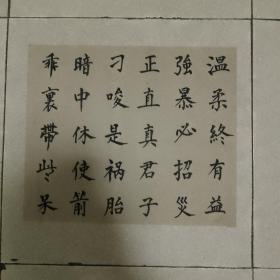 温柔終有益
強暴必招災
正直真君子
刁唆是祸胎
暗中休使箭
乖裏帶些呆